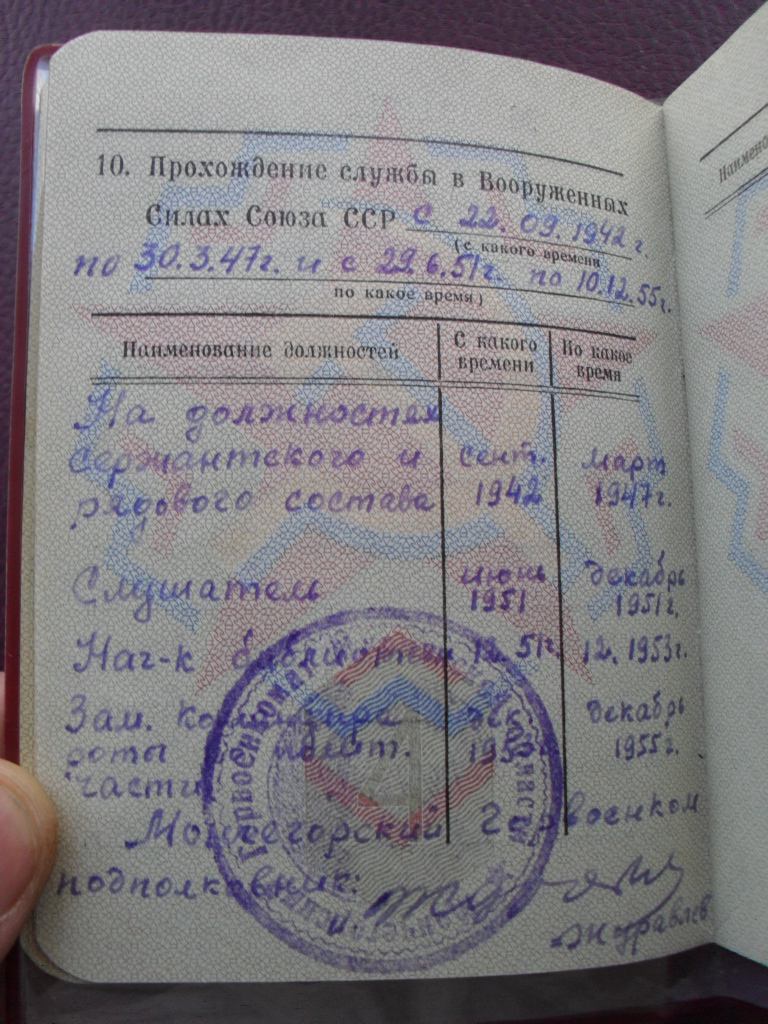 10. Прохождение службы в Вооруженных
Силах Союза ССР с 22.09.1942г.
(с какого времени
по 30.3.47г. и с 29.6.51г. по 10.12.55г.
по какое время)
Наименование должностей
С какого времени
По какое время
На должностях
сержантского и сент. март
рядового состава 1942 1947г.
Слушатель июнь декабрь
1951 1951г.
Нач-к библиотеки 12.51г. 12.1953г.
Зам. командира дек. декабрь
роты полит. 1955г.
части
Мончегорский Горвоенком
подполковник:
Журавлев
Наимено